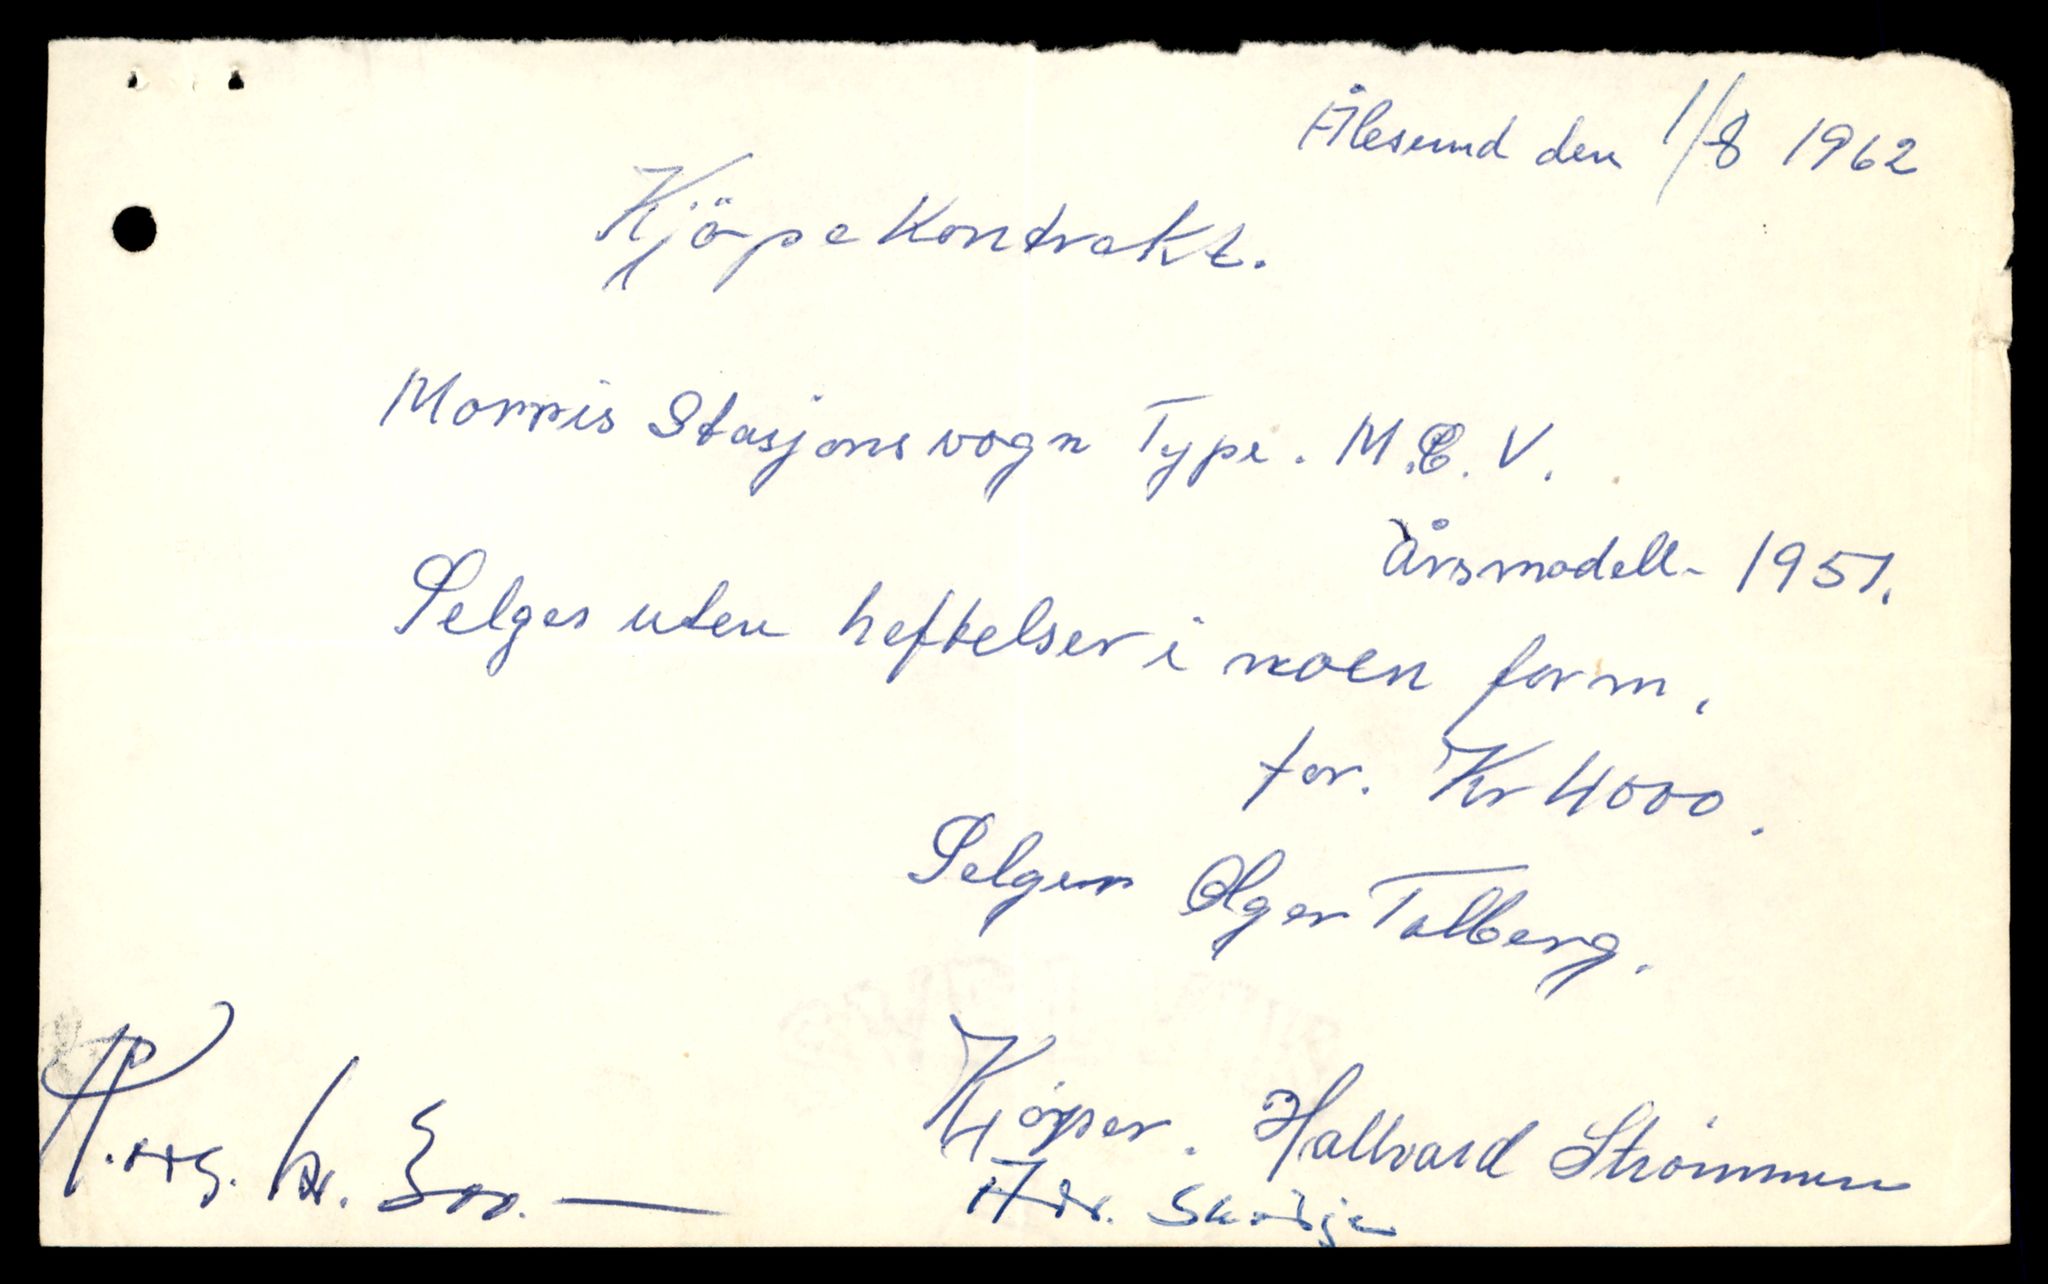 Ålesund den 1/8 1962
Kjöpekontrakt.
Morris Stasjonsvogn Type. M.C.V.
Årsmodell - 1951.
Selges uten heftelser i noen form,
for. Kr 4000.
Selger Olger Talberg.
Kjöper. Hallvard Strømmen
Adr. Skodje
kr. 300.—